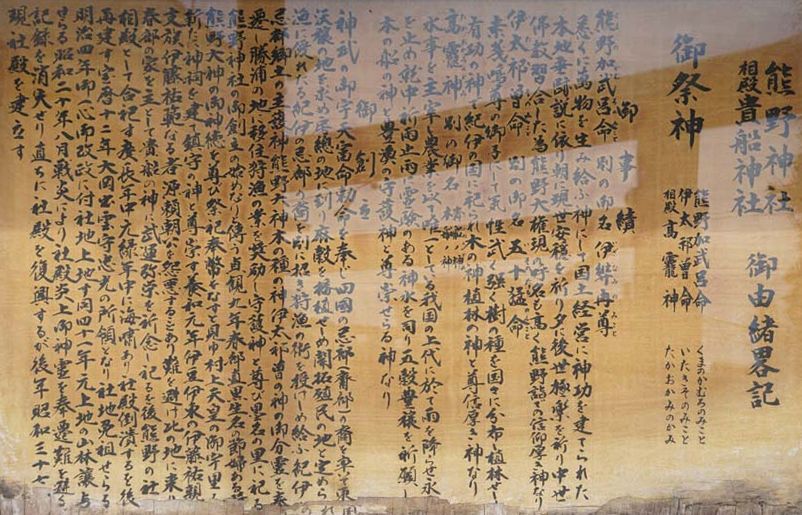 熊野神社
相殿 貴船神社 御由緒畧記
御祭神
熊野加武呂命 くまのかむろのみこと
伊太祁曽命 いたきそのみこと
相殿 高龗神 たかおかみのかみ
御事績
熊野加武呂命 別の御名伊弉冉尊
悉くに萬物を生み給ふ神にして国土経営に神功を建てられた
本地垂跡説に依り朝に現世安穏を祈り夕に後世極楽を祈り中世
佛教習合した為熊野大権現の呼名も高く熊野詣での信仰厚き神なり
伊太祁曽命 別の御名五十猛命
素戔嗚尊の御子にして気性武く強く樹の種を国々に分布植林せし
有功の神で紀伊の国に祀られ木の神植林の神と尊信厚き神なり
高龗神 別の御名
水事を主宰し農業を以て唯一としてる我国の上代に於て雨を降らせ永
を止め乾中祈雨止雨に霊験のある神水を司り五穀豊穣を祈願し
木の船の神と豊漁の守護神と尊崇せらる神なり
御創立
神武の御宇天富命勅命を奉じ四国の忌部(斎部)の裔を率て東国
沃穣の地を求め至總の地に到り麻穀を播植せめ開拓殖民の地と定められ
漁に優れてる紀伊の忌部の裔を別に招き狩漁の術を授けしめ給ふ紀伊の
忌部郷土の主護神熊野大神木の種の神伊太祁曽の神の御分霊を奉
遷し勝浦の地に移住狩漁の業を奨励し守護神と尊び里名の里に祀る
熊野神社の御創立の始めなり傳う貞観九年春部直黒生名の節婦ある
熊野大神の御神徳を尊び祭祀奉幣をなす村上天皇の御宇里人
新た神祠を建て鎮守の神と尊宗す養和元年伊豆伊東の伊藤祐親
支族伊藤祐範なる者源頼朝公を怨悪することあり難を避け此の地に来り
春部の家を主として貴船の神に武運弥栄を祈念し祀るを後熊野の社
相殿として合祀す慶長年中元緑年中に海嘯あり社殿倒潰するを後
再建す宝暦十二年大岡出雲守忠光の所領となり社地免租せらる
明治四年御一心御改政に付社地上地す同四十一年元上地の山林譲与
さる昭和二十年八月戦炎により社殿炎上御神霊を奉遷難を避る
記録を消失せり直ちに社殿を復興するが後年昭和三十七、
現社殿を建立す